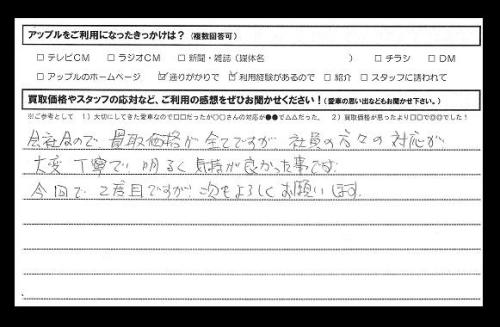 アップルをご利用になったきっかけは？（複数回答可）
□ テレビCM □ ラジオCM □ 新聞・雑誌（媒体名 ） □ チラシ □ DM
□ アップルのホームページ ☑ 通りがかりで ☑ 利用経験があるので □ 紹介 □ スタッフに誘われて
買取価格やスタッフの応対など、ご利用の感想をぜひお聞かせください！（愛車の思い出などもお聞かせ下さい。）
※ご参考として 1）大切にしてきた愛車なので□□だったが○○さんの対応が●●で△△だった。 2）買取価格が思ったより□□で◎◎でした！
会社なので 買取価格が全てですが 社員の方々の対応が
大変丁寧で 明るく気持が良かった事です.
今回で 2度目ですが 次もよろしくお願いします.